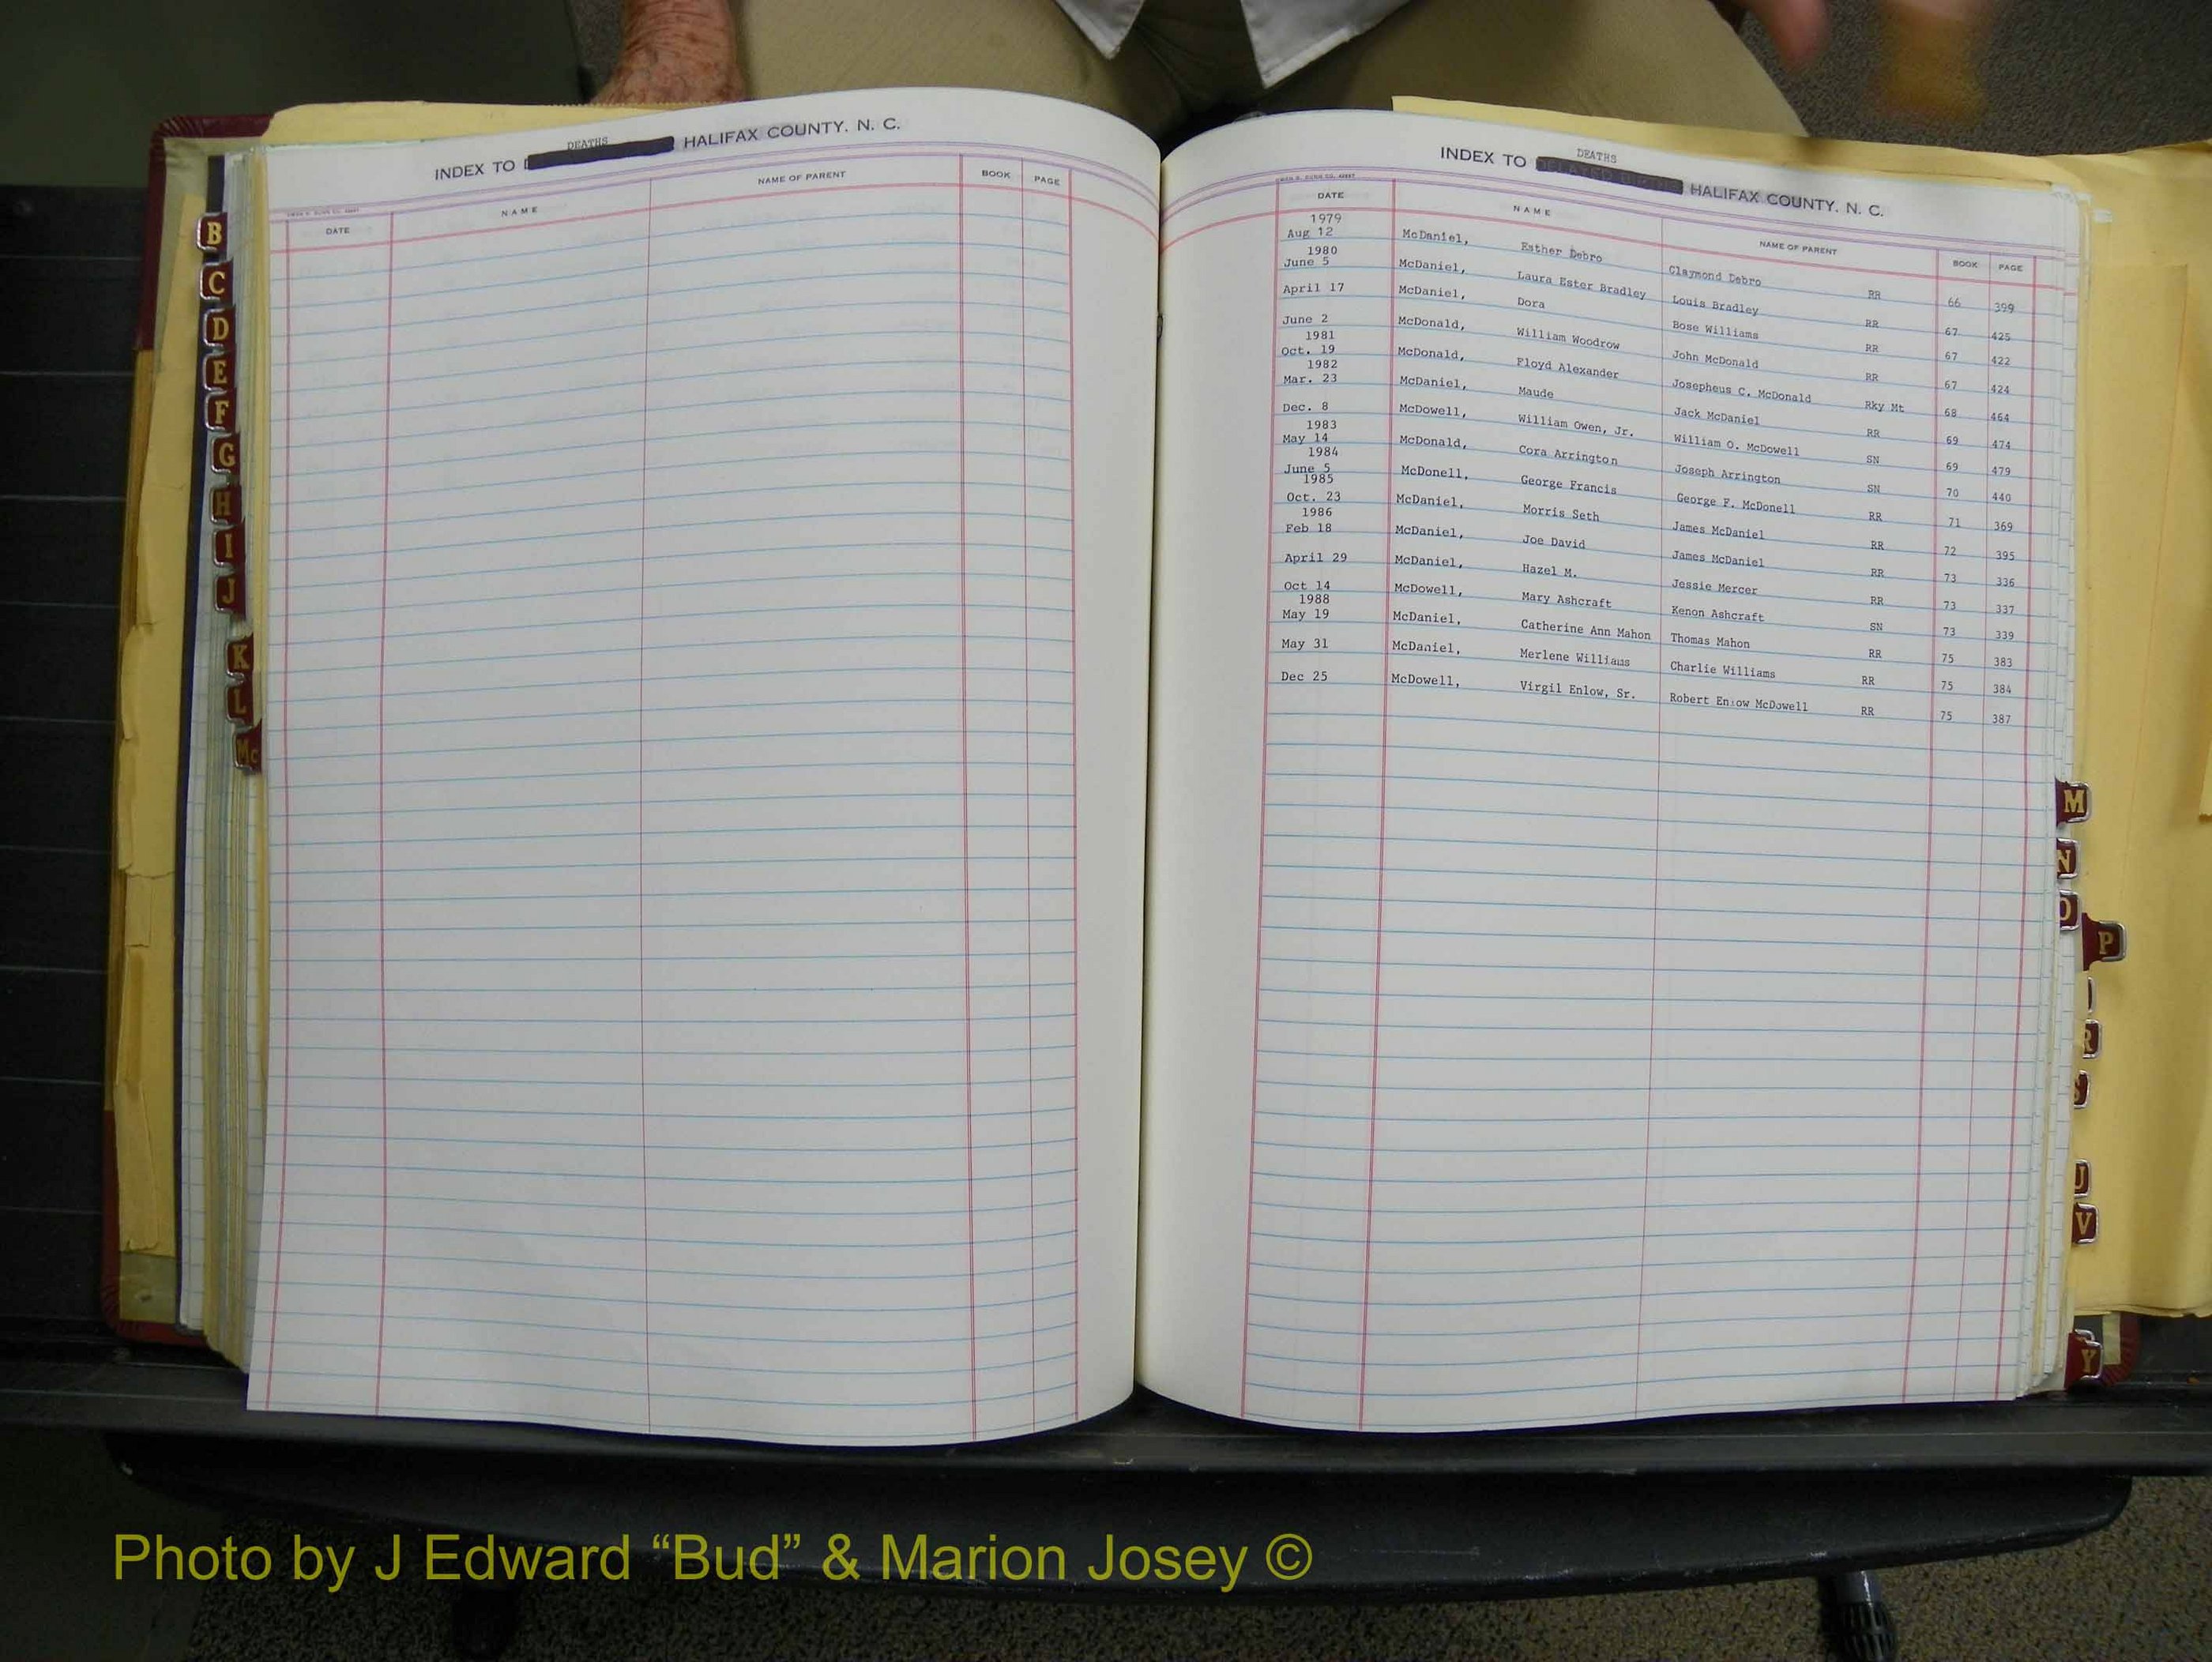 DEATHS
INDEX TO HALIFAX COUNTY. N. C.
DATE NAME NAME OF PARENT BOOK PAGE
B
C
D
E
F
G
H
I
J
K
L
Mc
DEATHS
INDEX TO HALIFAX COUNTY. N. C.
DATE NAME NAME OF PARENT BOOK PAGE
1979
Aug 12 McDaniel, Esther Debro Claymond Debro RR 66 399
1980
June 5 McDaniel, Laura Ester Bradley Louis Bradley RR 67 425
April 17 McDaniel, Dora Bose Williams RR 67 422
June 2 McDonald, William Woodrow John McDonald RR 67 424
1981
Oct. 19 McDonald, Floyd Alexander Josepheus C. McDonald Rky Mt 68 464
1982
Mar. 23 McDaniel, Maude Jack McDaniel RR 69 474
Dec. 8 McDowell, William Owen, Jr. William O. McDowell SN 69 479
1983
May 14 McDonald, Cora Arrington Joseph Arrington SN 70 440
1984
June 5 McDonell, George Francis George F. McDonell RR 71 369
1985
Oct. 23 McDaniel, Morris Seth James McDaniel RR 72 395
1986
Feb 18 McDaniel, Joe David James McDaniel RR 73 336
April 29 McDaniel, Hazel M. Jessie Mercer RR 73 337
Oct 14 McDowell, Mary Ashcraft Kenon Ashcraft SN 73 339
1988
May 19 McDaniel, Catherine Ann Mahon Thomas Mahon RR 75 383
May 31 McDaniel, Merlene Williams Charlie Williams RR 75 384
Dec 25 McDowell, Virgil Enlow, Sr. Robert Enlow McDowell RR 75 387
M
N
O
P
R
S
U
V
Y
Photo by J Edward “Bud” & Marion Josey ©